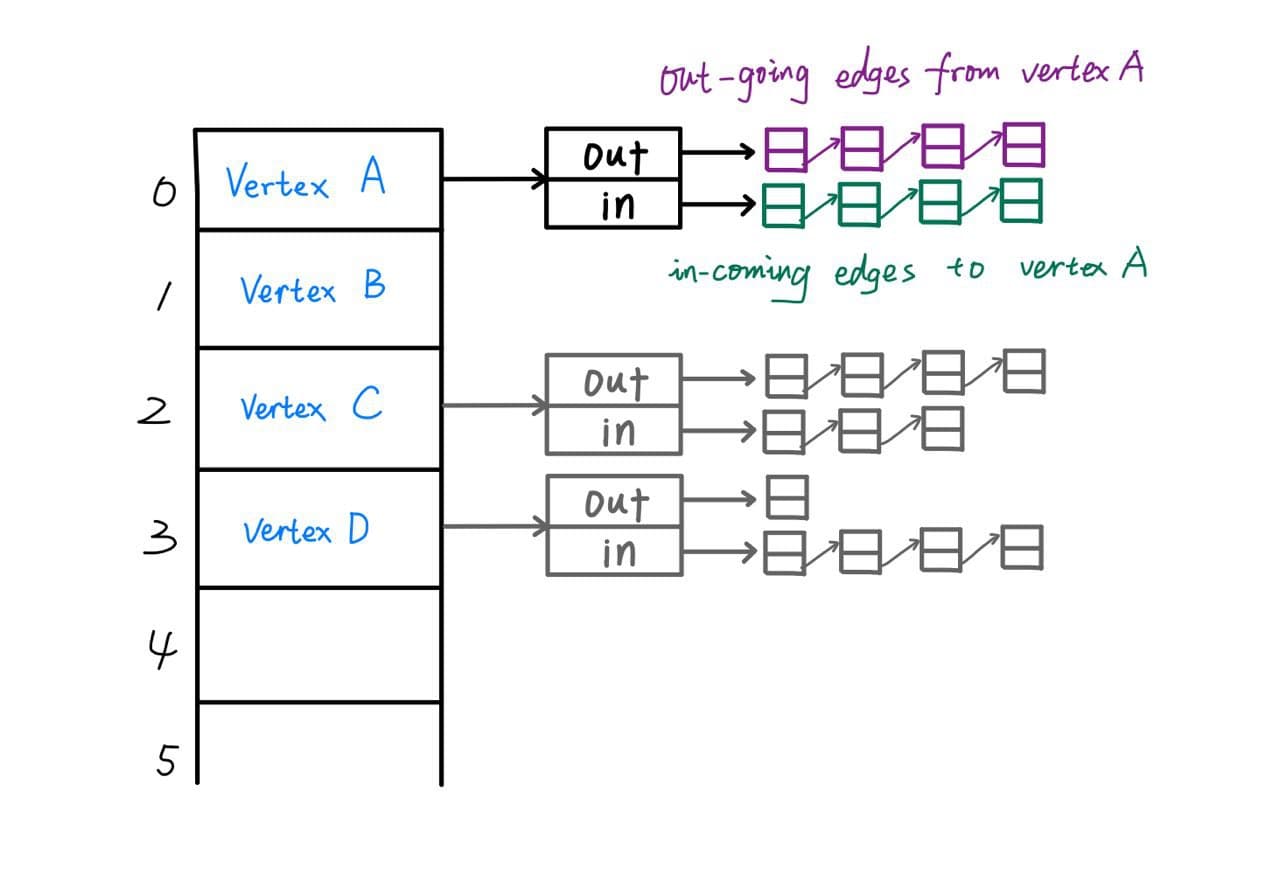 out-going edges from vertex A
0 Vertex A out
in
in-coming edges to vertex A
1 Vertex B
2 Vertex C out
in
3 Vertex D out
in
4
5